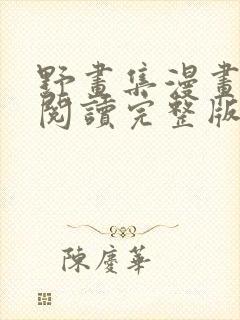 野畫集漫畫
閱讀完整版
陳慶華